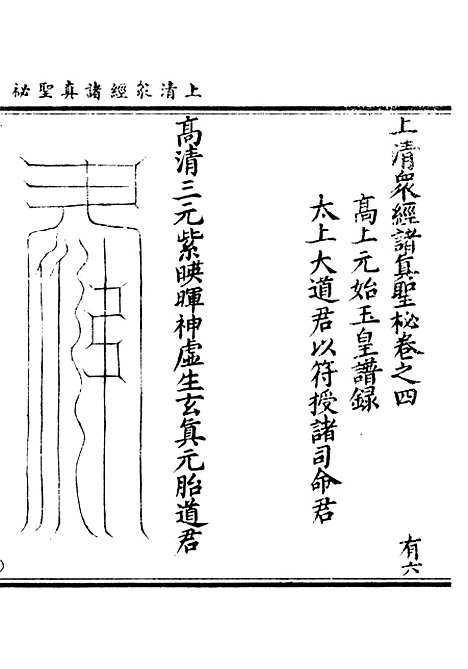 上清衆經諸真聖秘
上清衆經諸真聖秘卷之四
有六
高上元始玉皇譜録
太上大道君以符授諸司命君
高清三元紫映暉神虛生玄真元胎道君